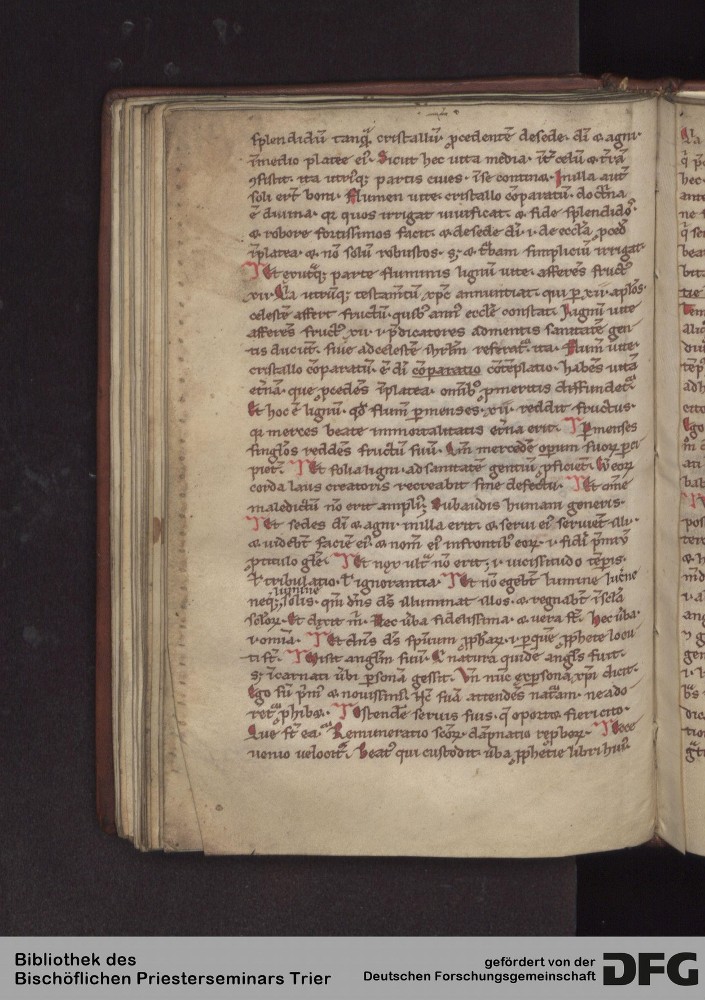 splendidū tanq̄ cristallū· ꝓcedentē desede· dī ⁊ agni·
īmedio platee eiꝰ· Sicut hec uita media· int͛ celū ⁊ t͛rā
ꝯsistit· ita utriꝰq; partis ciues· īse continꝫ· Inilla aut̄
soli er̄t boni· flumen uite· cristallo cōparatū· doctrīa
ē diuina· qꝛ quos irrigat uiuificat· ⁊ fide splendidoꝰ
⁊ robore fortissimos facit· ⁊ desede dī· ı· de eccl̄a ꝓced̄
īplatea· ⁊ nō solū robustos· s; ⁊ t͛bam simpliciū irrigat·
Et exutq; parte fluminis lignū uite· afferēs fructꝰ
xii· utrūq; testam̄tū xp̄c annuntiat· qui ꝑ xii· apl̄os·
celestē affert fructū· quibꝰ anni eccl̄e constat· Lignū uite
afferēs fructꝰ xii· ı· p̄dicatores admentis sanitatē gen
tis ducūt· siue adcelestē ihrl̄m referat͛· ita· flum̄ uite·
cristallo cōparatū· ē dī cōparatio cōtēplatio· habēs uitā
et͛nā· que ꝓcedēs īplatea· omībꝰ ꝓmeritis diffundet͛·
Et hoc ē lignū· qd̄ flum̄ ꝑmenses· xii· reddit fructus·
qꝛ merces beate immortalitatis et͛na erit· Ꝑmenses
singl̄os reddēs fructū suū· mercedē oꝑum suoꝝ ꝑci
piet· Et folia ligni· ad sanitatē gentiū ꝓficiēt· eoꝝ
corda laus creatoris recreabit sine defectu· Et om̄e
maledictū nō erit ampliꝰ· Subaudis humani generis·
Et sedes dī ⁊ agni· inilla erit· ⁊ serui eiꝰ seruiēt illi·
⁊ uidebt̄ faciē eiꝰ· ⁊ nom̄ eiꝰ infrontibꝰ eoꝝ· ı· fidei
ꝓtitulo gl̄e· Et nox ult͛ nō erit· ı· uicissitudo tēꝑis·
ł tribulatio· ł ignorantia· Et nō egebt̄ lumine lucīne
lumine
neq; solis· qm̄ dn̄s dī illuminat illos· ⁊ regnabt̄ īscl̄a
scloꝝ· Et dixit m̄· Hec ūba fidelissima· ⁊ uera st̄· Hec ūba·
ı· omīa· Et dn̄s ds̄ spirituū ꝓph̄aꝝ· ı· ꝑque ꝓphete locu
ti st̄· Misit angl̄m suū· natura quidē angl̄s fuit·
s; īcarnati ūbi ꝑsonā gessit· Vn̄ nūc exꝑsona xp̄i dicit·
Ego sū p̄mꝰ ⁊ nouissimꝰ· suā attendēs nat͛am· ne ado
ret͛ ꝓhibꝫ· Ostendē seruis suis· q̄ oportꝫ fieri cito·
Que st̄ ea· Remuneratio scōꝝ· dāpnatio rep̄boꝝ· Ecce
uenio uelocit͛· Beatꝰ qui custodit· ūba ꝓphetie libri huiꝰ·
Bibliothek des
Bischöflichen Priesterseminars Trier
gefördert von der
Deutschen Forschungsgemeinschaft
DFG